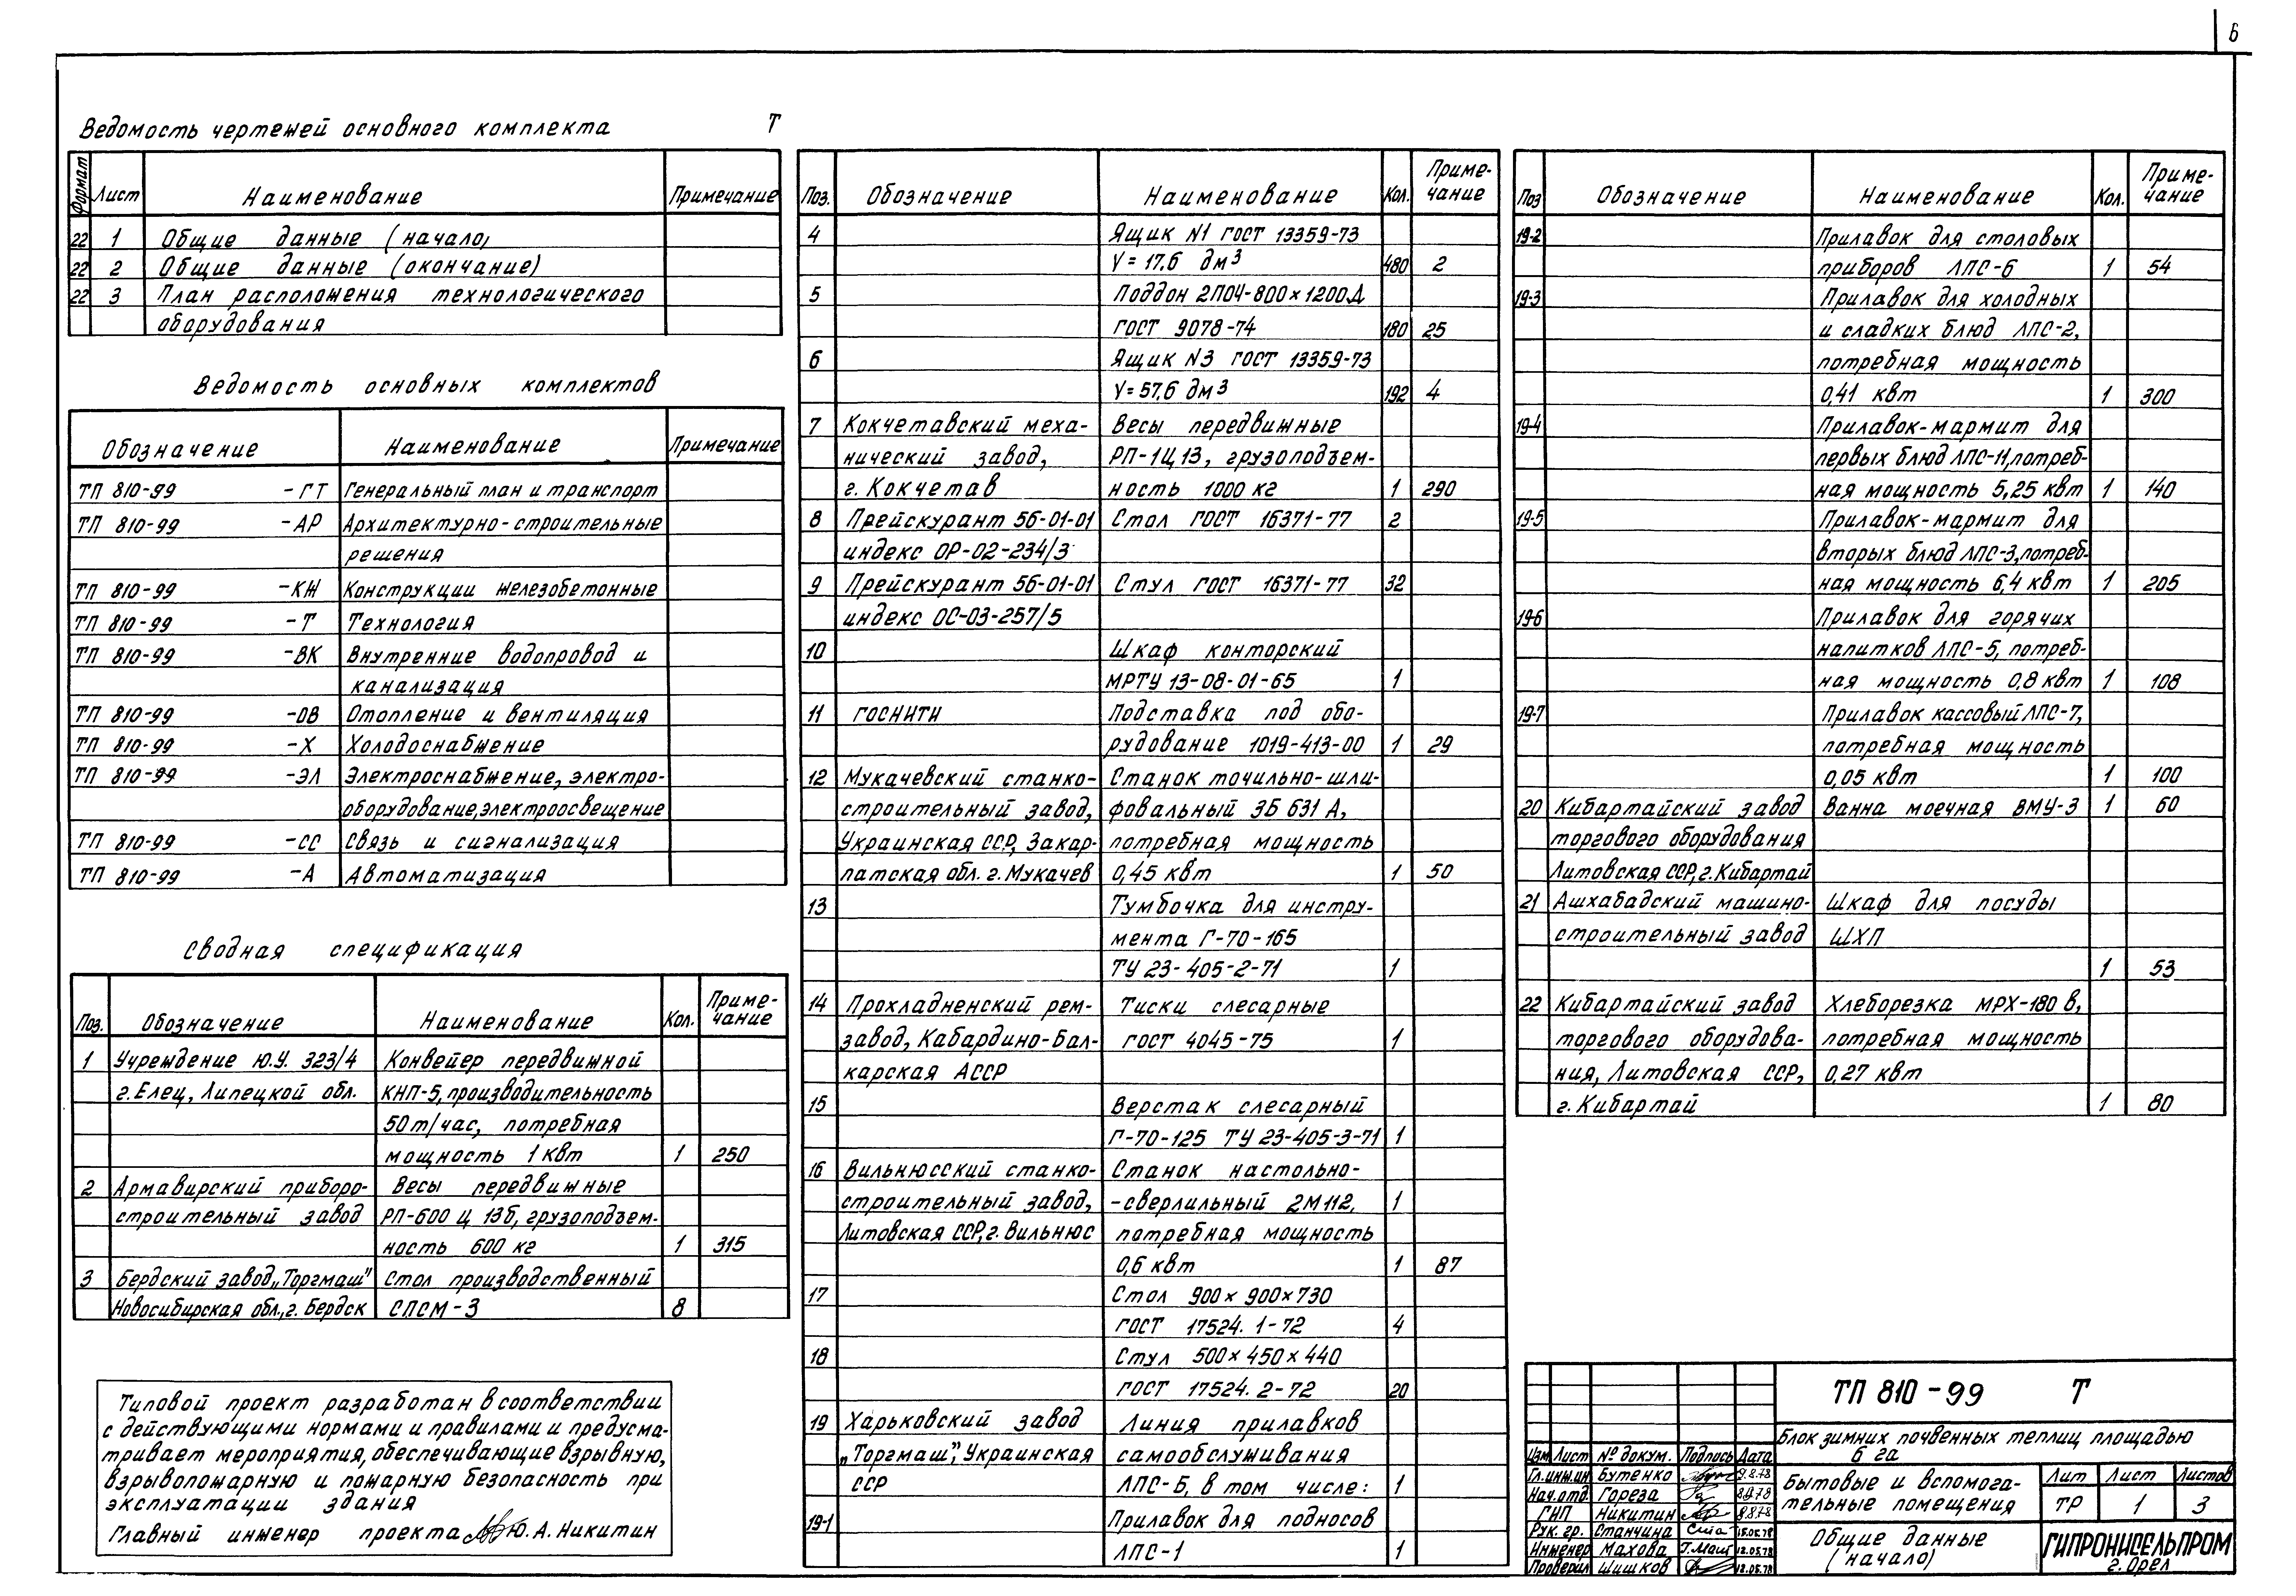 6
Ведомость чертежей основного комплекта Т
Формат Лист Наименование Примечание
22 1 Общие данные (начало)
22 2 Общие данные (окончание)
22 3 План расположения технологического
оборудования
Ведомость основных комплектов
Обозначение Наименование Примечание
ТП 810-99 -ГТ Генеральный план и транспорт
ТП 810-99 -АР Архитектурно-строительные
решения
ТП 810-99 -КЖ Конструкции железобетонные
ТП 810-99 -Т Технология
ТП 810-99 -ВК Внутренние водопровод и
канализация
ТП 810-99 -ОВ Отопление и вентиляция
ТП 810-99 -Х Холодоснабжение
ТП 810-99 -ЭЛ Электроснабжение, электро-
оборудование, электроосвещение
ТП 810-99 -СС Связь и сигнализация
ТП 810-99 -А Автоматизация
Сводная спецификация
Поз. Обозначение Наименование Кол. Приме-
чание
1 Учреждение Ю.У. 323/4 Конвейер передвижной
г. Елец, Липецкой обл. КНП-5, производительность
50т/час, потребная
мощность 1 квт 1 250
2 Армавирский приборо- Весы передвижные
строительный завод РП-600 Ц 13б, грузоподъем-
ность 600 кг 1 315
3 Бердский завод „Торгмаш" Стол производственный
Новосибирская обл., г. Бердск СПСМ-3 8
Типовой проект разработан в соответствии
с действующими нормами и правилами и предусма-
тривает мероприятия, обеспечивающие взрывную,
взрывопожарную и пожарную безопасность при
эксплуатации здания
Главный инженер проекта Ю. А. Никитин
Поз. Обозначение Наименование Кол. Приме-
чание
4 Ящик N1 ГОСТ 13359-73
V = 17,6 дм³ 480 2
5 Поддон 2ПОЧ-800×1200Д
ГОСТ 9078-74 180 25
6 Ящик N3 ГОСТ 13359-73
V = 57,6 дм³ 192 4
7 Кокчетавский меха- Весы передвижные
нический завод, РП-1Ц13, грузоподъем-
г. Кокчетав ность 1000 кг 1 290
8 Прейскурант 56-01-01 Стол ГОСТ 16371-77 2
индекс ОР-02-234/3
9 Прейскурант 56-01-01 Стул ГОСТ 16371-77 32
индекс ОС-03-257/5
10 Шкаф конторский
МРТУ 13-08-01-65 1
11 ГОСНИТИ Подставка под обо-
рудование 1019-413-00 1 29
12 Мукачевский станко- Станок точильно-шли-
строительный завод, фовальный 3Б 631 А,
Украинская ССР, Закар- потребная мощность
патская обл. г. Мукачев 0,45 квт 1 50
13 Тумбочка для инстру-
мента Г-70-165
ТУ 23-405-2-71 1
14 Прохладненский рем- Тиски слесарные
завод, Кабардино-Бал- ГОСТ 4045-75 1
карская АССР
15 Верстак слесарный
Г-70-125 ТУ 23-405-3-71 1
16 Вильнюсский станко- Станок настольно-
строительный завод, -сверлильный 2М112, 1
Литовская ССР, г. Вильнюс потребная мощность
0,6 квт 1 87
17 Стол 900×900×730
ГОСТ 17524. 1-72 4
18 Стул 500×450×440
ГОСТ 17524. 2-72 20
19 Харьковский завод Линия прилавков
„Торгмаш", Украинская самообслуживания
ССР ЛПС-Б, в том числе: 1
19-1 Прилавок для подносов
ЛПС-1 1
Поз Обозначение Наименование Кол. Приме-
чание
19-2 Прилавок для столовых
приборов ЛПС-6 1 54
19-3 Прилавок для холодных
и сладких блюд ЛПС-2,
потребная мощность
0,41 квт 1 300
19-4 Прилавок-мармит для
первых блюд ЛПС-11, потреб-
ная мощность 5,25 квт 1 140
19-5 Прилавок-мармит для
вторых блюд ЛПС-3, потреб-
ная мощность 6,4 квт 1 205
19-6 Прилавок для горячих
напитков ЛПС-5, потреб-
ная мощность 0,8 квт 1 108
19-7 Прилавок кассовый ЛПС-7,
потребная мощность
0,05 квт 1 100
20 Кибартайский завод Ванна моечная ВМУ-3 1 60
торгового оборудования
Литовская ССР, г. Кибартай
21 Ашхабадский машино- Шкаф для посуды
строительный завод ШХП
1 53
22 Кибартайский завод Хлеборезка МРХ-180 в,
торгового оборудова- потребная мощность
ния, Литовская ССР, 0,27 квт
г. Кибартай 1 80
ТП 810-99 Т
Блок зимних почвенных теплиц площадью
6 га
Изм Лист № докум. Подпись Дата
Гл.инж.ин Бутенко 9.8.78
Нач.отд. Гореза
ГИП Никитин 9.8.78
Рук. гр. Станчина 15.05.78
Инженер Махова 12.05.78
Проверил Шишков 12.05.78
Бытовые и вспомога-
тельные помещения
Лит Лист Листов
ТР 1 3
Общие данные
(начало)
ГИПРОНИСЕЛЬПРОМ
г. Орел